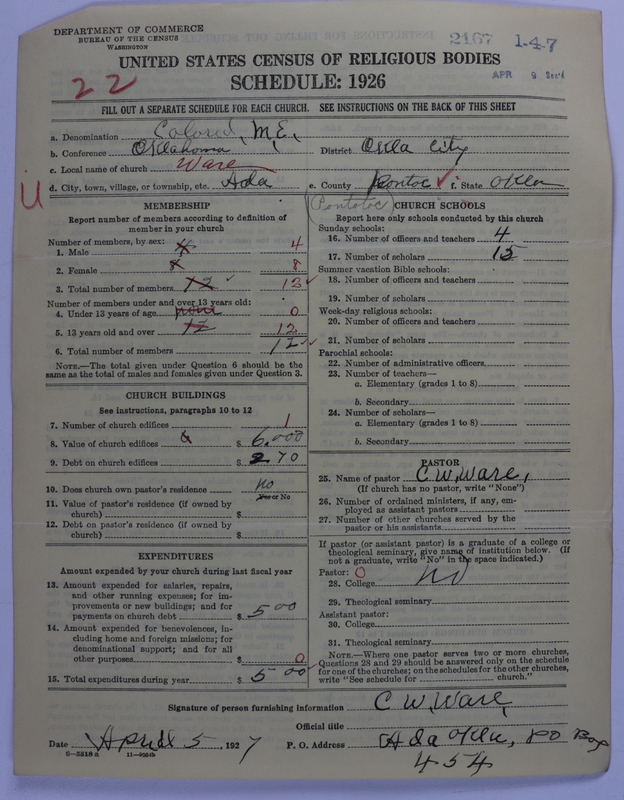 DEPARTMENT OF COMMERCE
BUREAU OF THE CENSUS
WASHINGTON
2167 1-4-7
UNITED STATES CENSUS OF RELIGIOUS BODIES
APR 9 Rec'd
22
SCHEDULE: 1926
FILL OUT A SEPARATE SCHEDULE FOR EACH CHURCH. SEE INSTRUCTIONS ON THE BACK OF THIS SHEET
a. Denomination Colored, M.E.,
b. Conference Oklahoma District Okla City
c. Local name of church Ware
U
d. City, town, village, or township, etc. Ada e. County Pontoc f. State Okla
(Pontotoc)
MEMBERSHIP
Report number of members according to definition of
member in your church
Number of members, by sex:
1. Male 4 4
2. Female 8 8
3. Total number of members 12 13
Number of members under and over 13 years old:
4. Under 13 years of age none 0
5. 13 years old and over 12 12
6. Total number of members 12
NOTE.—The total given under Question 6 should be
same as the total of males and females given under Question 3.
CHURCH BUILDINGS
See instructions, paragraphs 10 to 12
7. Number of church edifices 1
8. Value of church edifices $ 6.000
9. Debt on church edifices $ 270
10. Does church own pastor's residence No
Yes or No
11. Value of pastor's residence (if owned by
church) $
12. Debt on pastor's residence (if owned by
church) $
EXPENDITURES
Amount expended by your church during last fiscal year
13. Amount expended for salaries, repairs,
and other running expenses; for im-
provements or new buildings; and for
payments on church debt $ 5 00
14. Amount expended for benevolences, in-
cluding home and foreign missions; for
denominational support; and for all
other purposes $ 0
15. Total expenditures during year $ 5 00
CHURCH SCHOOLS
Report here only schools conducted by this church
Sunday schools:
16. Number of officers and teachers 4
17. Number of scholars 15
Summer vacation Bible schools:
18. Number of officers and teachers
19. Number of scholars
Week-day religious schools:
20. Number of officers and teachers
21. Number of scholars
Parochial schools:
22. Number of administrative officers
23. Number of teachers—
a. Elementary (grades 1 to 8)
b. Secondary
24. Number of scholars—
a. Elementary (grades 1 to 8)
b. Secondary
PASTOR
25. Name of pastor C W. Ware,
(If church has no pastor, write "None")
26. Number of ordained ministers, if any, em-
ployed as assistant pastors
27. Number of other churches served by the
pastor or his assistants
If pastor (or assistant pastor) is a graduate of a college or
theological seminary, give name of institution below. (If
not a graduate, write "No" in the space indicated.)
Pastor: 0
28. College No
29. Theological seminary
Assistant pastor:
30. College
31. Theological seminary
NOTE.—Where one pastor serves two or more churches,
Questions 28 and 29 should be answered only on the schedule
for one of the churches; on the schedules for the other churches,
write "See schedule for church."
Signature of person furnishing information C W. Ware,
Official title
Date April 5, 1927 P. O. Address Ada Okla, PO Box
454
8-5518 a